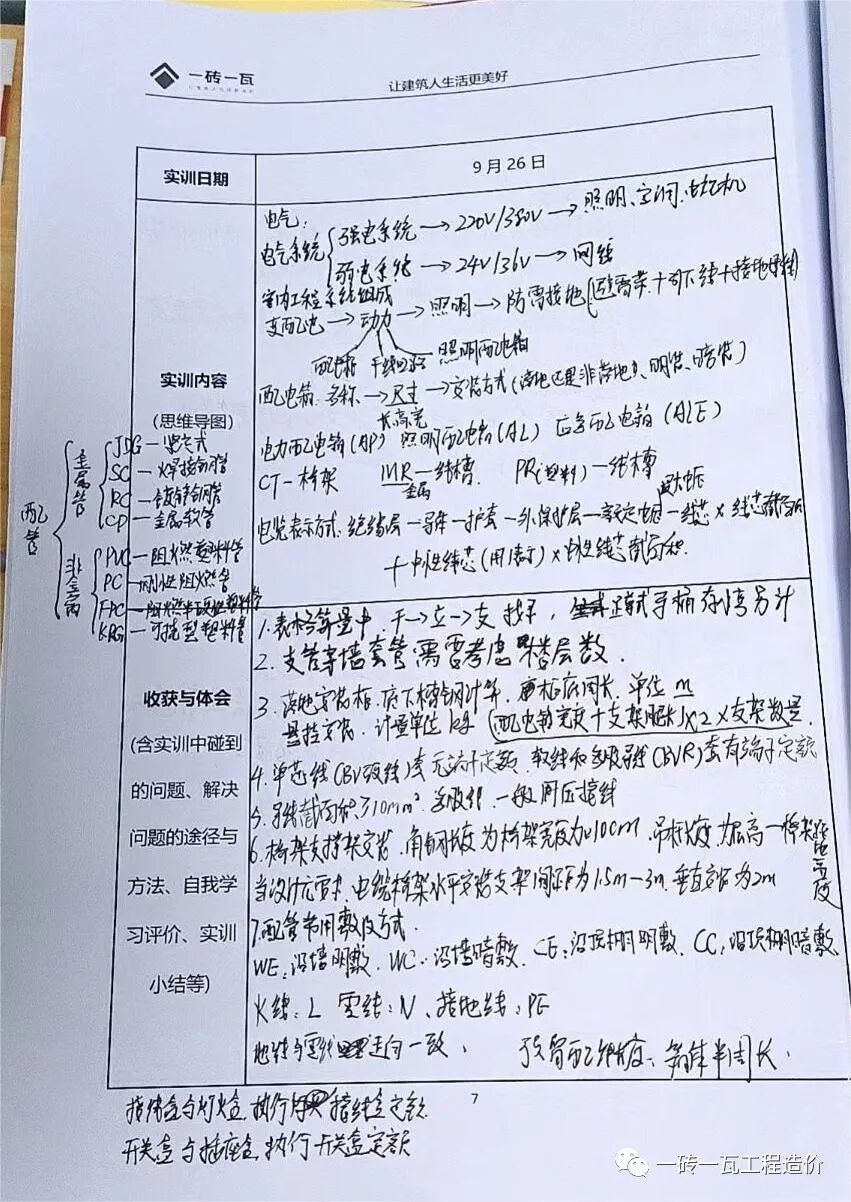 一砖一瓦
让建筑人生活更美好
实训日期
9月26日
实训内容
(思维导图)
电气:
电气系统
强电系统→220V/380V→照明、空调、电视机
弱电系统→24V/36V→网线
室内工程系统组成
变配电→动力→照明→防雷接地(避雷带+引下线+接地母线)
配电箱 干线回路 照明配电箱
配电箱 名称→尺寸→安装方式(落地还是非落地、明装、暗装)
长高宽
电力配电箱(AP) 照明配电箱(AL) 应急配电箱(ALE)
CT-桥架 MR-线槽 PR(塑料)-线槽
金属
电缆表示方式:绝缘层-导体-护套-外保护层-额定电压-线芯×线芯截面积
+中性线芯(用1表示)×中性线芯截面积.
配管
金属管
JDG-紧定式
SC-焊接钢管
RC-镀锌钢管
CP-金属软管
非金属
PVC-阻燃塑料管
PC-刚性阻燃管
FPC-阻燃半硬性塑料管
KRG-可挠型塑料管
收获与体会
(含实训中碰到
的问题、解决
问题的途径与
方法、自我学
习评价、实训
小结等)
1.表格算量中,干→立→支 找平,
2.支管穿墙套管需要考虑 楼层数.
3.落地安装柜,底下槽钢计算, 柜底周长,单位m
悬挂安装,计量单位kg (配电箱宽度+支架腿长)×2×支架数量.
4.单芯线(BV硬线)套无端子定额,软线和多股导线(BVR)套有端子定额
5.导线截面积≥10mm²多股线,一般用压接线
6.桥架支撑架安装,角钢长度为桥架宽度加10cm,吊杆长度为层高-桥架安装高度
当设计无要求,电缆桥架水平安装支架间距为1.5m-3m,垂直安装为2m
7.配管常用敷设方式.
WE:沿墙明敷. WC:沿墙暗敷. CE:沿顶棚明敷. CC:沿顶棚暗敷
火线:L 零线:N、接地线:PE
地线与零线走向一致, 预留配线长度:箱体半周长.
7
接线盒与灯头盒 执行 接线盒定额
开关盒与插座盒 执行开关盒定额
一砖一瓦工程造价